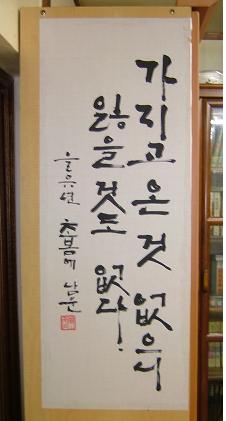 가지고 온 것 없으니
잃을 것도 없다!
을유년 초봄에